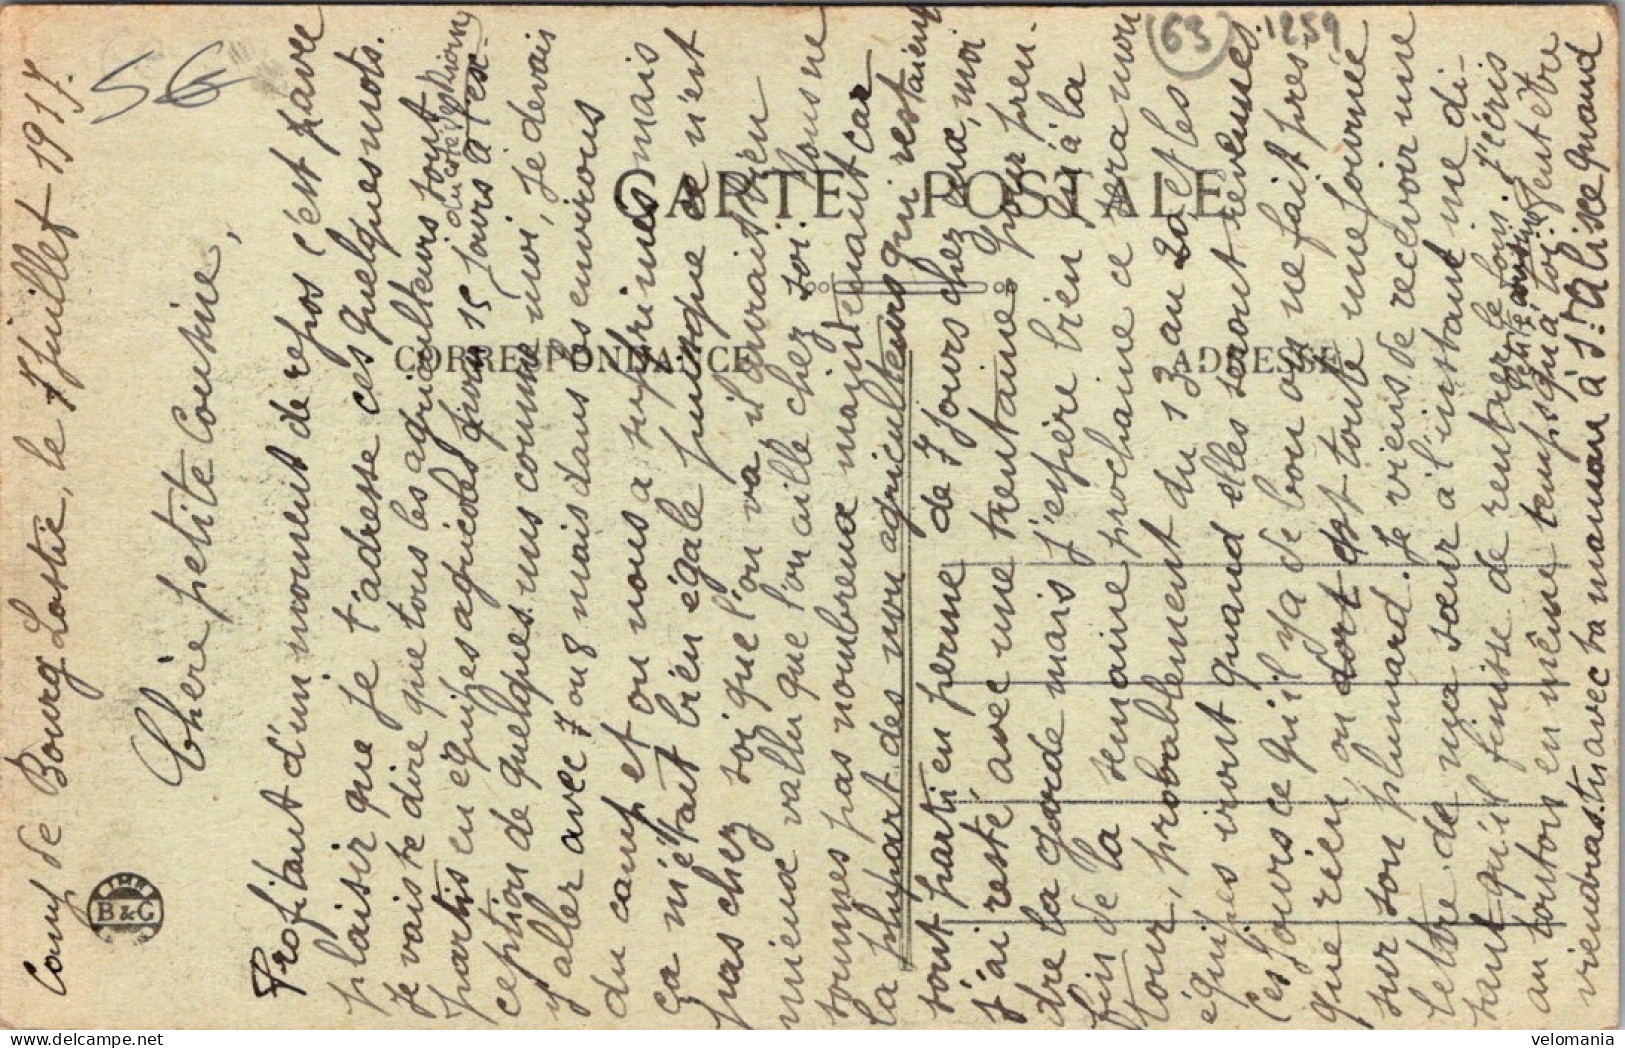 5€
(63) 1259
CARTE POSTALE
CORRESPONDANCE
ADRESSE
IMP. B & G
Camp de Bourg Lastic, le 7 Juillet 1917.
Chère petite Cousine,
Profitant d'un moment de repos c'est avec
plaisir que je t'adresse ces quelques mots.
Je vais te dire que tous les agriculteurs sont
partis en équipes agricoles pour 15 jours à l'ex-
du côté de Riom
ception de quelques uns comme moi, je devais
y aller avec 7 ou 8 mais dans les environs
du camp et on nous a supprimés mais
ça m'était bien égale puisque ce n'est
pas chez soi que l'on va il aurait bien
mieux vallu que l'on aille chez soi. Nous ne
sommes pas nombreux maintenant car
la plupart des non agriculteurs qui restaient
sont parti en perme de 7 jours chez eux, moi
j'ai resté avec une trentaine pour pren-
dre la garde mais j'espère bien qu'à la
fin de la semaine prochaine ce sera mon
tour, probablement du 13 au 20 et les
équipes iront quand elles seront revenues.
Ces jours ce qu'il y a de bon on ne fait pres-
que rien, on dort toute une journée
sur son plumard. Je viens de recevoir une
lettre de ma sœur à l'instant me di-
sant qu'ils finisse de rentrer le foin. J'écris
au tonton en même temps qu'à toi peut être
petite cousine
viendras-tu avec ta maman à St Alise quand